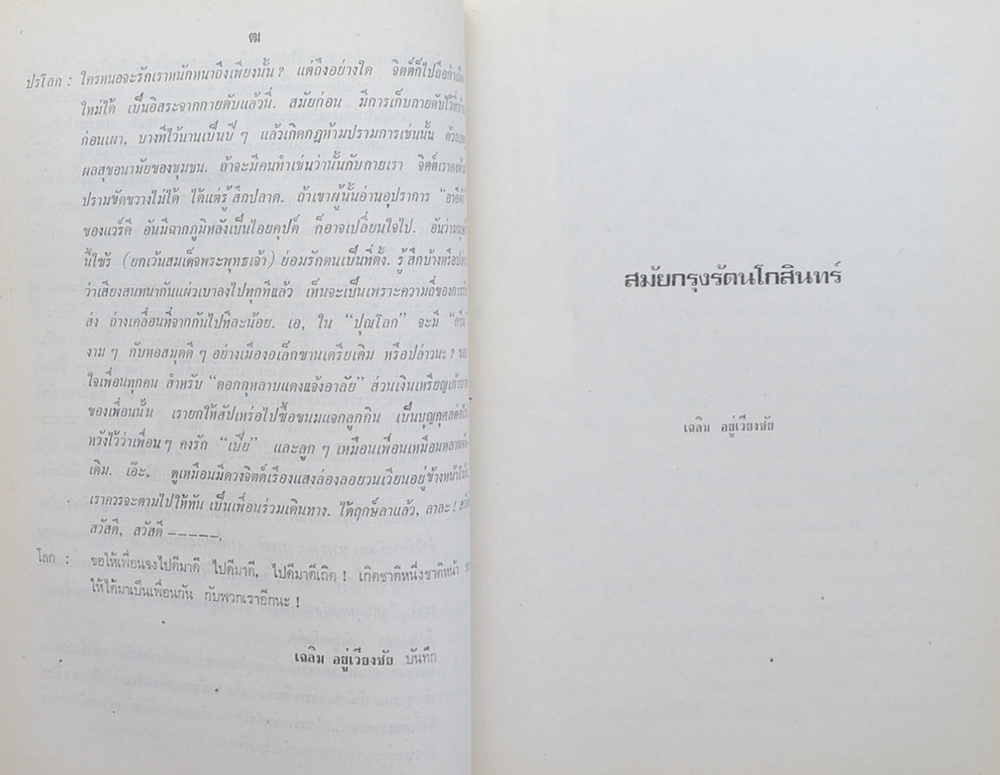 ฒ
ปรโลก : ใครหนอจะรักเราหนักหนาถึงเพียงนั้น ? แต่ถึงอย่างใด จิตต์ก็ไปถือกำเนิด
ใหม่ได้ เป็นอิสระจากกายดับแล้วนี่. สมัยก่อน มีการเก็บกายดับไว้
ก่อนเผา, บางทีไว้นานเป็นปี ๆ แล้วเกิดกฎห้ามปรามการเช่นนั้น ด้วย
ผลสุขอนามัยของชุมชน. ถ้าจะมีคนทำเช่นว่านั้นกับกายเรา จิตต์เราคง
ปรามขัดขวางไม่ได้ ได้แต่รู้สึกปลาด. ถ้าเขาผู้นั้นอ่านอุปราการ “อาอีด้า
ของแวร์ดี อันมีฉากภูมิหลังเป็นไอยคุปต์ ก็อาจเปลี่ยนใจไป. อันว่ามนุษย์
นี้ไซร้ (ยกเว้นสมเด็จพระพุทธเจ้า) ย่อมรักตนเป็นที่ตั้ง. รู้สึกบ้างหรือ
ว่าเสียงสนทนากันแผ่วเบาลงไปทุกทีแล้ว เห็นจะเป็นเพราะความถี่ของการ
ส่ง ถ่างเคลื่อนที่จากกันไปทีละน้อย. เอ, ใน “ปุณโลก” จะมี
งาม ๆ กับหอสมุดดี ๆ อย่างเมืองอเล็กซานเดรียเดิม หรือปล่าวนะ ?
ใจเพื่อนทุกคน สำหรับ “ดอกกุหลาบแดงแจ้งอาลัย” ส่วนเงินเหรียญ
ของเพื่อนนั้น เรายกให้สัปเหร่อไปซื้อขนมแจกลูกกิน เป็นบุญกุศล
หวังไว้ว่าเพื่อน ๆ คงรัก “เบี้ย” และลูก ๆ เหมือนเพื่อนเหมือนหลาน
เดิม. เอ๊ะ, ดูเหมือนมีดวงจิตต์เรืองแสงล่องลอยวนเวียนอยู่ข้างหน้า
เราควรจะตามไปให้ทัน เป็นเพื่อนร่วมเดินทาง. ได้ฤกษ์ลาแล้ว, ลาละ !
สวัสดี, สวัสดี —————.
โลก : ขอให้เพื่อนจงไปดีมาดี ไปดีมาดี, ไปดีมาดีเถิด ! เกิดชาติหนึ่งชาติหน้า
ให้ได้มาเป็นเพื่อนกัน กับพวกเราอีกนะ !
เฉลิม อยู่เวียงชัย บันทึก
สมัยกรุงรัตนโกสินทร์
เฉลิม อยู่เวียงชัย